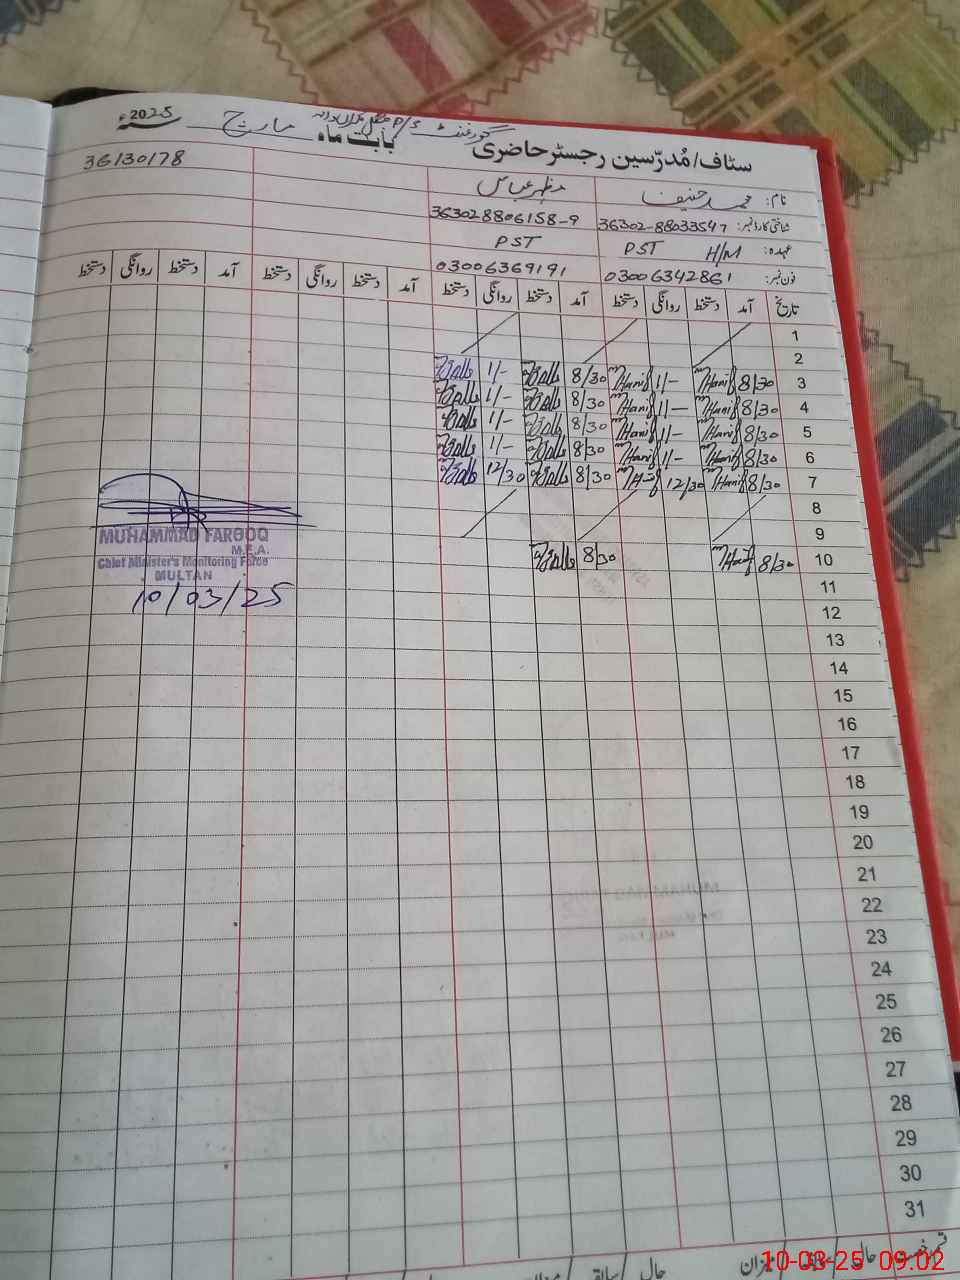 سٹاف/مُدرّسین رجسٹر حاضری گورنمنٹ P/S بابت ماہ مارچ سنہ 2025ء
36130178
نام: محمد حنیف مظہر عباس
شناختی کارڈ نمبر: 36302-88033547 363028806158-9
عہدہ: H/M PST PST
فون نمبر: 03006342861 03006369191
تاریخ آمد دستخط روانگی دستخط آمد دستخط روانگی دستخط آمد دستخط روانگی دستخط آمد دستخط روانگی دستخط
1
2
3 8/30 Hanif 1/- Hanif 8/30 1/-
4 8/30 Hanif 1/- Hanif 8/30 1/-
5 8/30 Hanif 1/- Hanif 8/30 1/-
6 8/30 Hanif 1/- Hanif 8/30 1/-
7 8/30 Hanif 12/30 Hanif 8/30 12/30
8
9
10 8/30 Hanif 8/30
MUHAMMAD FAROOQ
M.E.A.
Chief Minister's Monitoring Force
MULTAN
10/03/25
11
12
13
14
15
16
17
18
19
20
21
22
23
24
25
26
27
28
29
30
31
حال سابقہ میزان حال
10-03-25 09:02